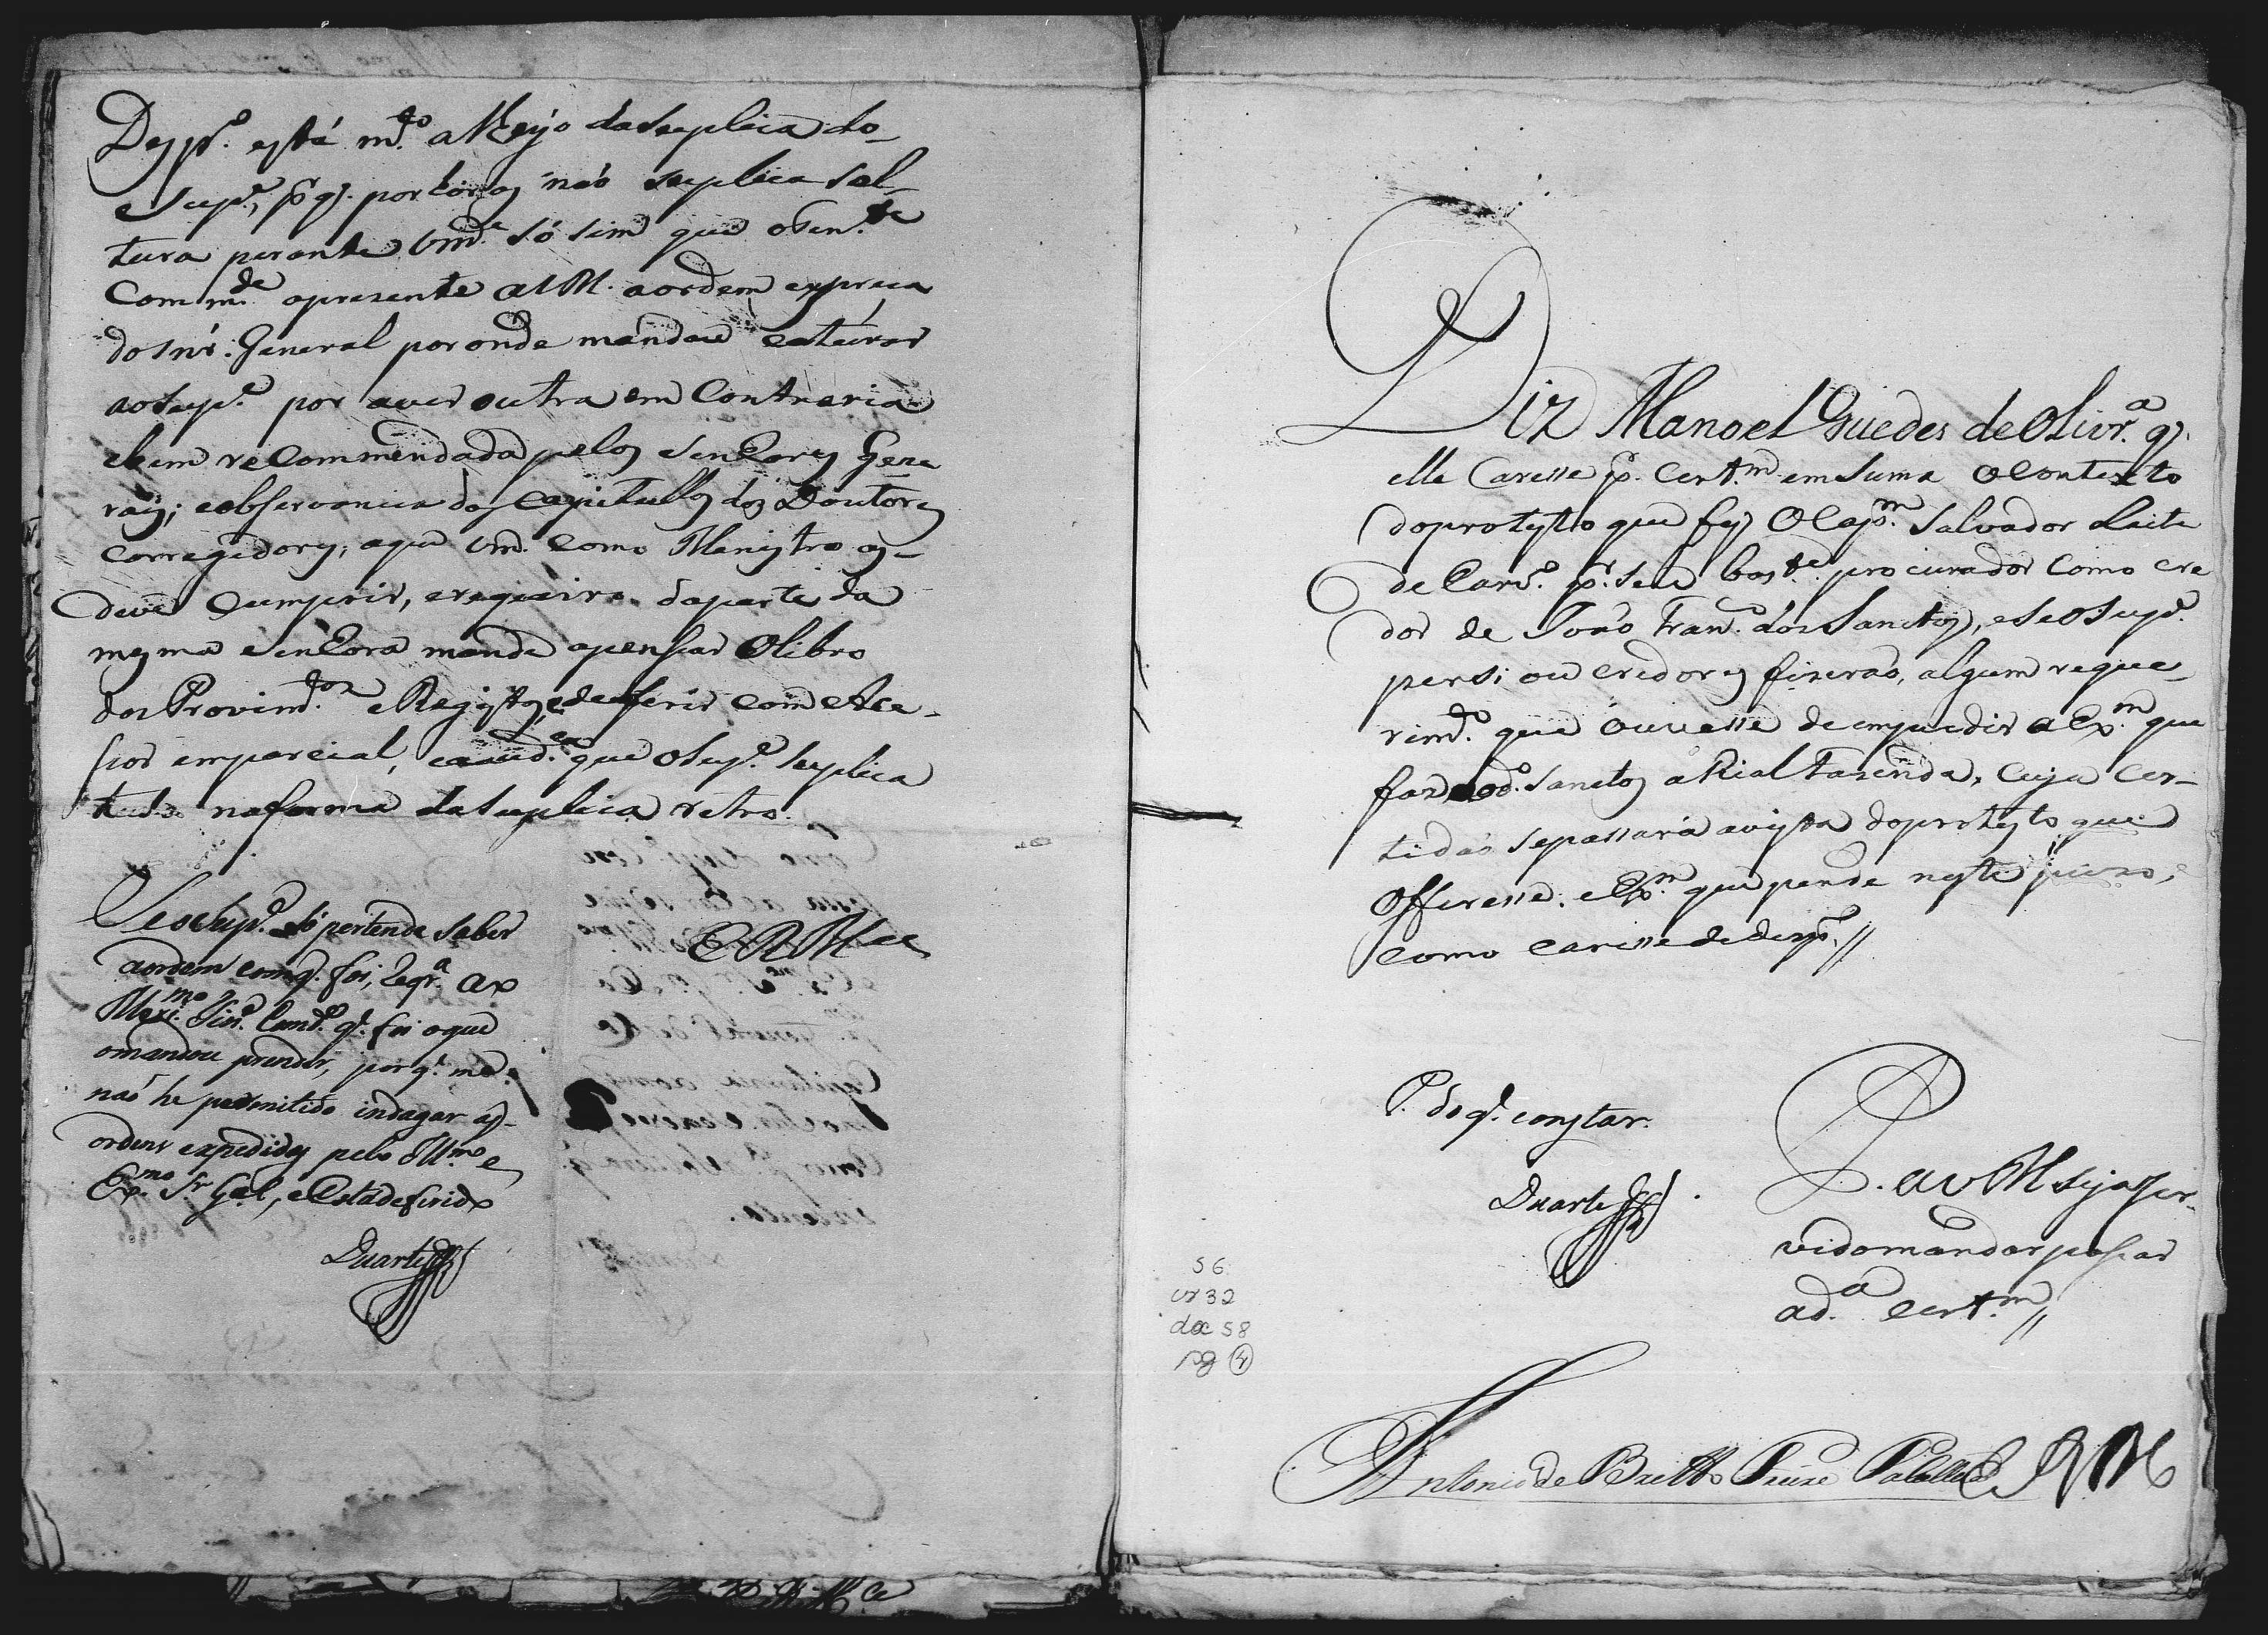 Desp.º está m.to alheyo da suplica do
Sup.e, p.r q̃. por hóra não suplica sol
tura perante Vm.ce só sim que o Ten.te
Comm.de apresente a VM. a ordem expreça
do Snr. General por onde mandou capturar
ao Sup.e por aver outra em Contraria
e bem recommendada pelos Senhores Gene
rais; e observancia dos Capitullos dos Doutores
Corregedores, a que Vm. como Menistro os
deve cumprir, e requeiro da parte da
mesma Senhora mande apensar o Libro
dos Provim.tos e Registos e deferir com
emparcial, que o Sup.e suplica
tudo na forma da suplica retro.
E R M ce
Se o Sup.e só pertende saber
a ordem com q̃. foi, reqr.ª ao
Mesmo Ten.e Com.e q̃. foi o que
o mandou prender, porq̃. me
não he permitido indagar as
ordens expedidas pelo Ill.mo e
Ex.mo Sr. Gal, e Está deferido
Duarte
Diz Manoel Guedes de Olivr.ª q̃.
elle Caresse p.r Cert.m em suma o contexto
do protesto que fes o Cap.m Salvador Leite
de Carv.º p.r seu bas.te procurador como cre
dor de João Fran.co dos Sanctos, e se o Sup.e
per si ou credores fizerão, algum reque
rim.to que ouvesse de empuedir a Ex.m que
faz ao d.º Sanctos a Rial Fazenda, cuja cer
tidão se passará a vista do protesto que
Offeresse: e Ex.m que pende neste juizo,
como caresse de desp.º //
P. do q̃. constar.
Duarte
P. a VM seja ser
vido mandar passar
a d.ª cert.m //
E R M
Antonio de Britto Freire
56
cx 32
doc 58
pg 4